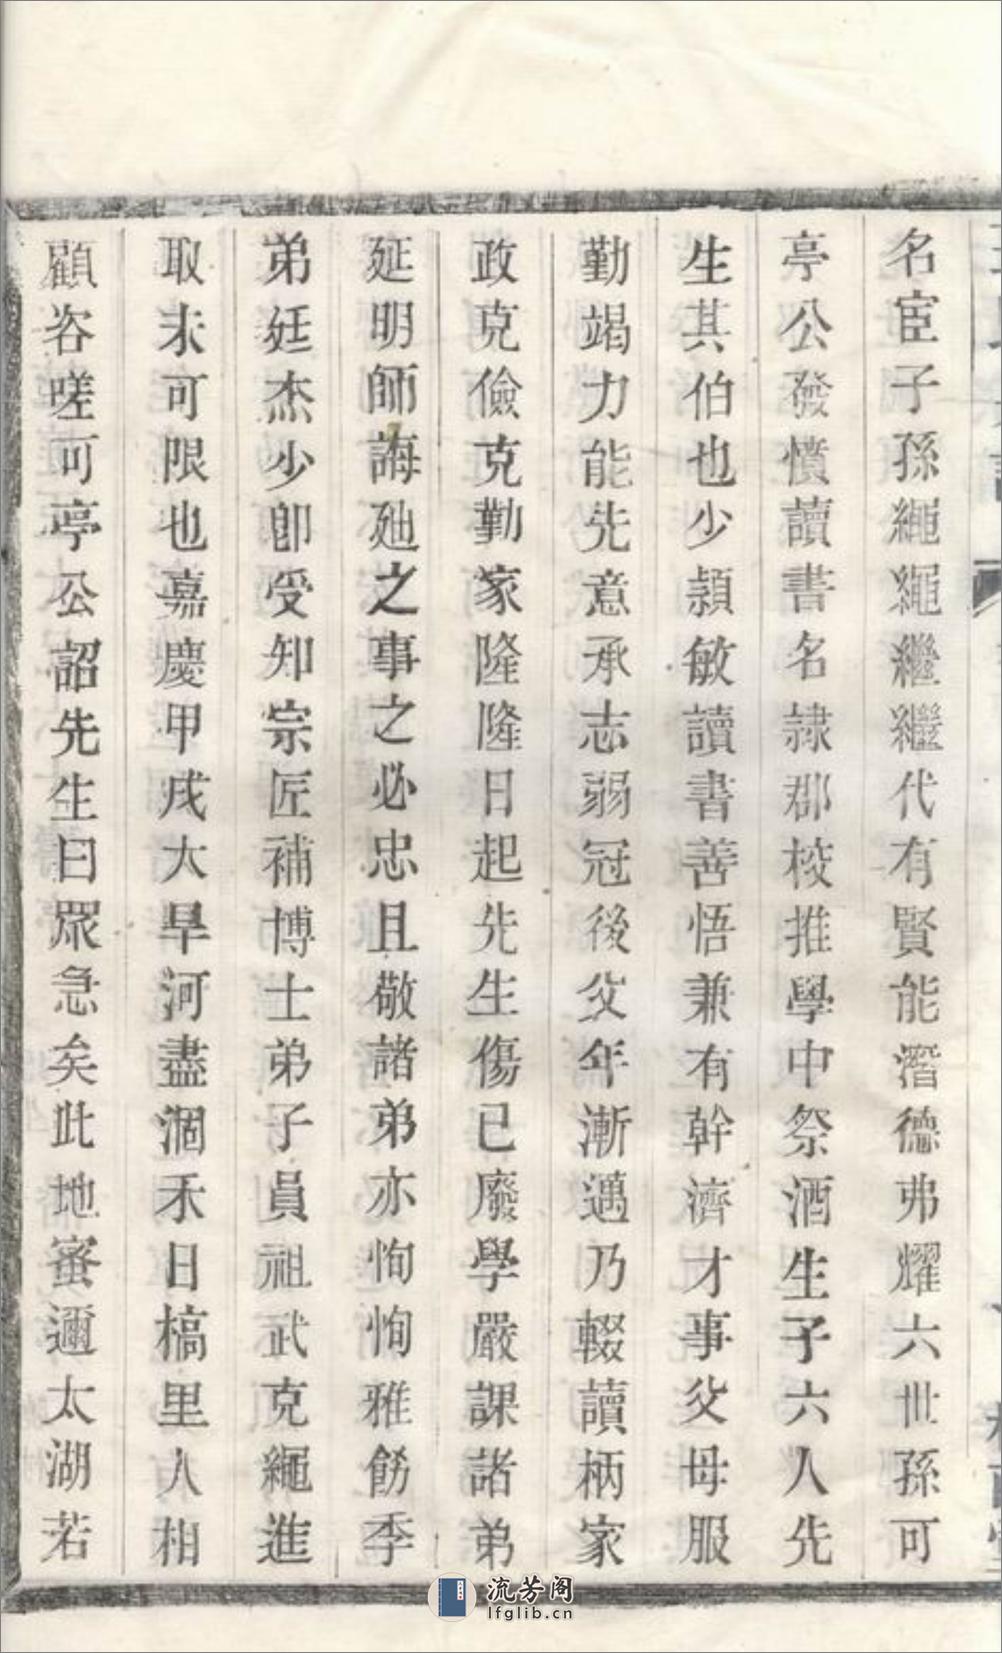 名宦子孫繩繩繼繼代有賢能潛德弗耀六世孫可
亭公發憤讀書名隷郡校推學中祭酒生子六人先
生其伯也少頴敏讀書善悟兼有幹濟才事父母服
勤竭力能先意承志弱冠後父年漸邁乃輟讀柄家
政克儉克勤家隆隆日起先生傷已廢學嚴課諸弟
延明師誨廸之事之必忠且敬諸弟亦恂恂雅飭季
弟廷杰少卽受知宗匠補博士弟子員祖武克繩進
取未可限也嘉慶甲戌大旱河盡涸禾日槁里人相
顧咨嗟可亭公詔先生曰眾急矣此地蜜邇太湖若
流芳阁
lfglib.cn